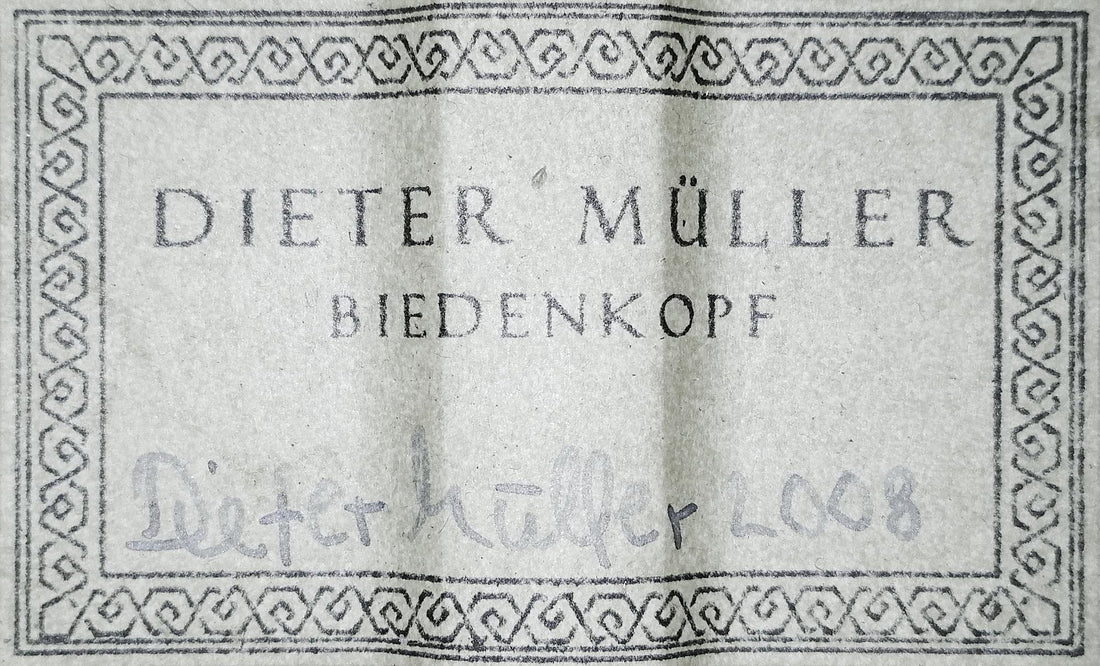 DIETER MÜLLER
BIEDENKOPF
Dieter Müller 2008